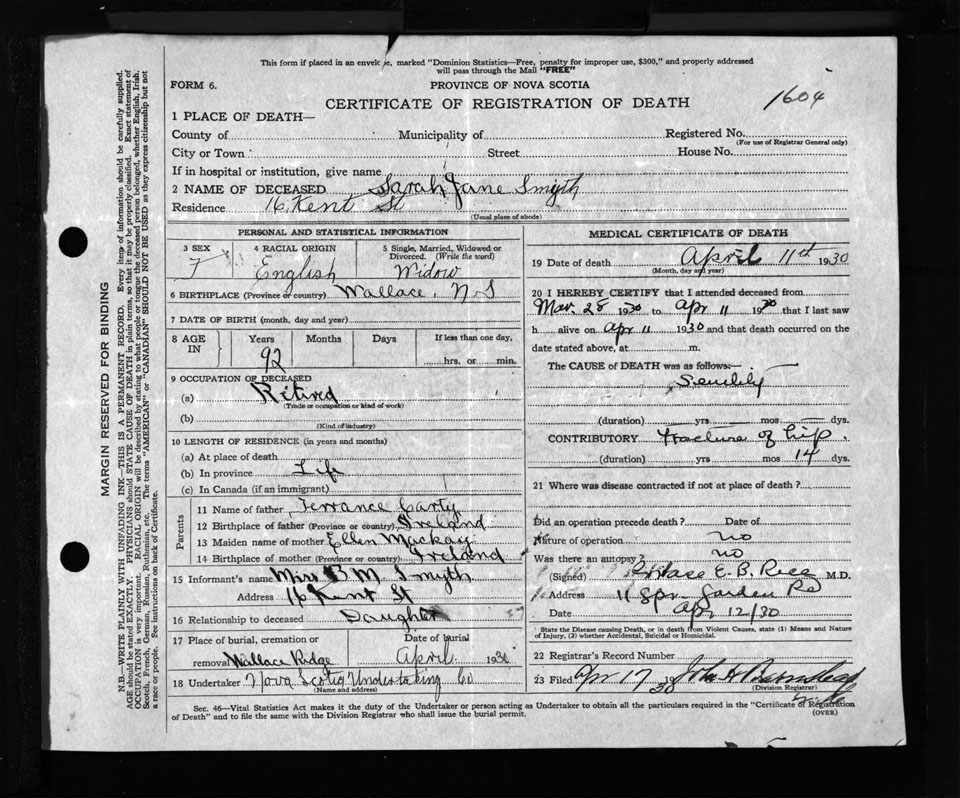 This form if placed in an envelope, marked "Dominion Statistics—Free, penalty for improper use, $300," and properly addressed
will pass through the Mail "FREE"
FORM 6.
PROVINCE OF NOVA SCOTIA
CERTIFICATE OF REGISTRATION OF DEATH
1604
1 PLACE OF DEATH—
County of Municipality of Registered No.
(For use of Registrar General only)
City or Town Street House No.
If in hospital or institution, give name
2 NAME OF DECEASED Sarah Jane Smyth
Residence 16 Kent St
(Usual place of abode)
PERSONAL AND STATISTICAL INFORMATION
3 SEX 4 RACIAL ORIGIN 5 Single, Married, Widowed or
Divorced. (Write the word)
F English Widow
6 BIRTHPLACE (Province or country) Wallace, N S
7 DATE OF BIRTH (month, day and year)
8 AGE IN Years Months Days If less than one day,
92 hrs. or min.
9 OCCUPATION OF DECEASED
(a) Retired
(Trade or occupation or kind of work)
(b)
(Kind of industry)
10 LENGTH OF RESIDENCE (in years and months)
(a) At place of death
(b) In province Life
(c) In Canada (if an immigrant)
Parents
11 Name of father Terrance Carty
12 Birthplace of father (Province or country) Ireland
13 Maiden name of mother Ellen Mackay
14 Birthplace of mother (Province or country) Ireland
15 Informant's name Miss B M. Smyth
Address 16 Kent St
16 Relationship to deceased Daughter
17 Place of burial, cremation or Date of burial
removal Wallace Ridge April 1930
18 Undertaker Nova Scotia Undertaking Co
(Name and address)
MEDICAL CERTIFICATE OF DEATH
19 Date of death April 11th 1930
(Month, day and year)
20 I HEREBY CERTIFY that I attended deceased from
Mar. 28 1930 to Apr 11 1930 that I last saw
h alive on Apr 11 1930 and that death occurred on the
date stated above, at m.
The CAUSE OF DEATH was as follows:—
Senility
(duration) yrs mos dys.
CONTRIBUTORY Fracture of hip.
(duration) yrs mos 14 dys.
21 Where was disease contracted if not at place of death?
Did an operation precede death? Date of
Nature of operation no
Was there an autopsy? no
(Signed) E. B. M.D.
Address 11 Spr. Garden Rd
Date Apr 12/30
State the Disease causing Death, or in death from Violent Causes, state (1) Means and Nature
of Injury, (2) whether Accidental, Suicidal or Homicidal.
22 Registrar's Record Number
23 Filed Apr 17 1930 John H
(Division Registrar)
Sec. 46—Vital Statistics Act makes it the duty of the Undertaker or person acting as Undertaker to obtain all the particulars required in the "Certificate of Registration
of Death" and to file the same with the Division Registrar who shall issue the burial permit.
(OVER)
MARGIN RESERVED FOR BINDING
N.B.—WRITE PLAINLY WITH UNFADING INK—THIS IS A PERMANENT RECORD. Every item of information should be carefully supplied.
AGE should be stated EXACTLY. PHYSICIANS should STATE CAUSE OF DEATH in plain terms, so that it may be properly classified. Exact statement of
OCCUPATION is very important. RACIAL ORIGIN will be described by stating to what people or tongue the deceased person belonged, whether English, Irish,
Scotch, French, German, Russian, Ruthenian, etc. The terms "AMERICAN" or "CANADIAN" SHOULD NOT BE USED as they express citizenship but not
a race or people. See instructions on back of Certificate.